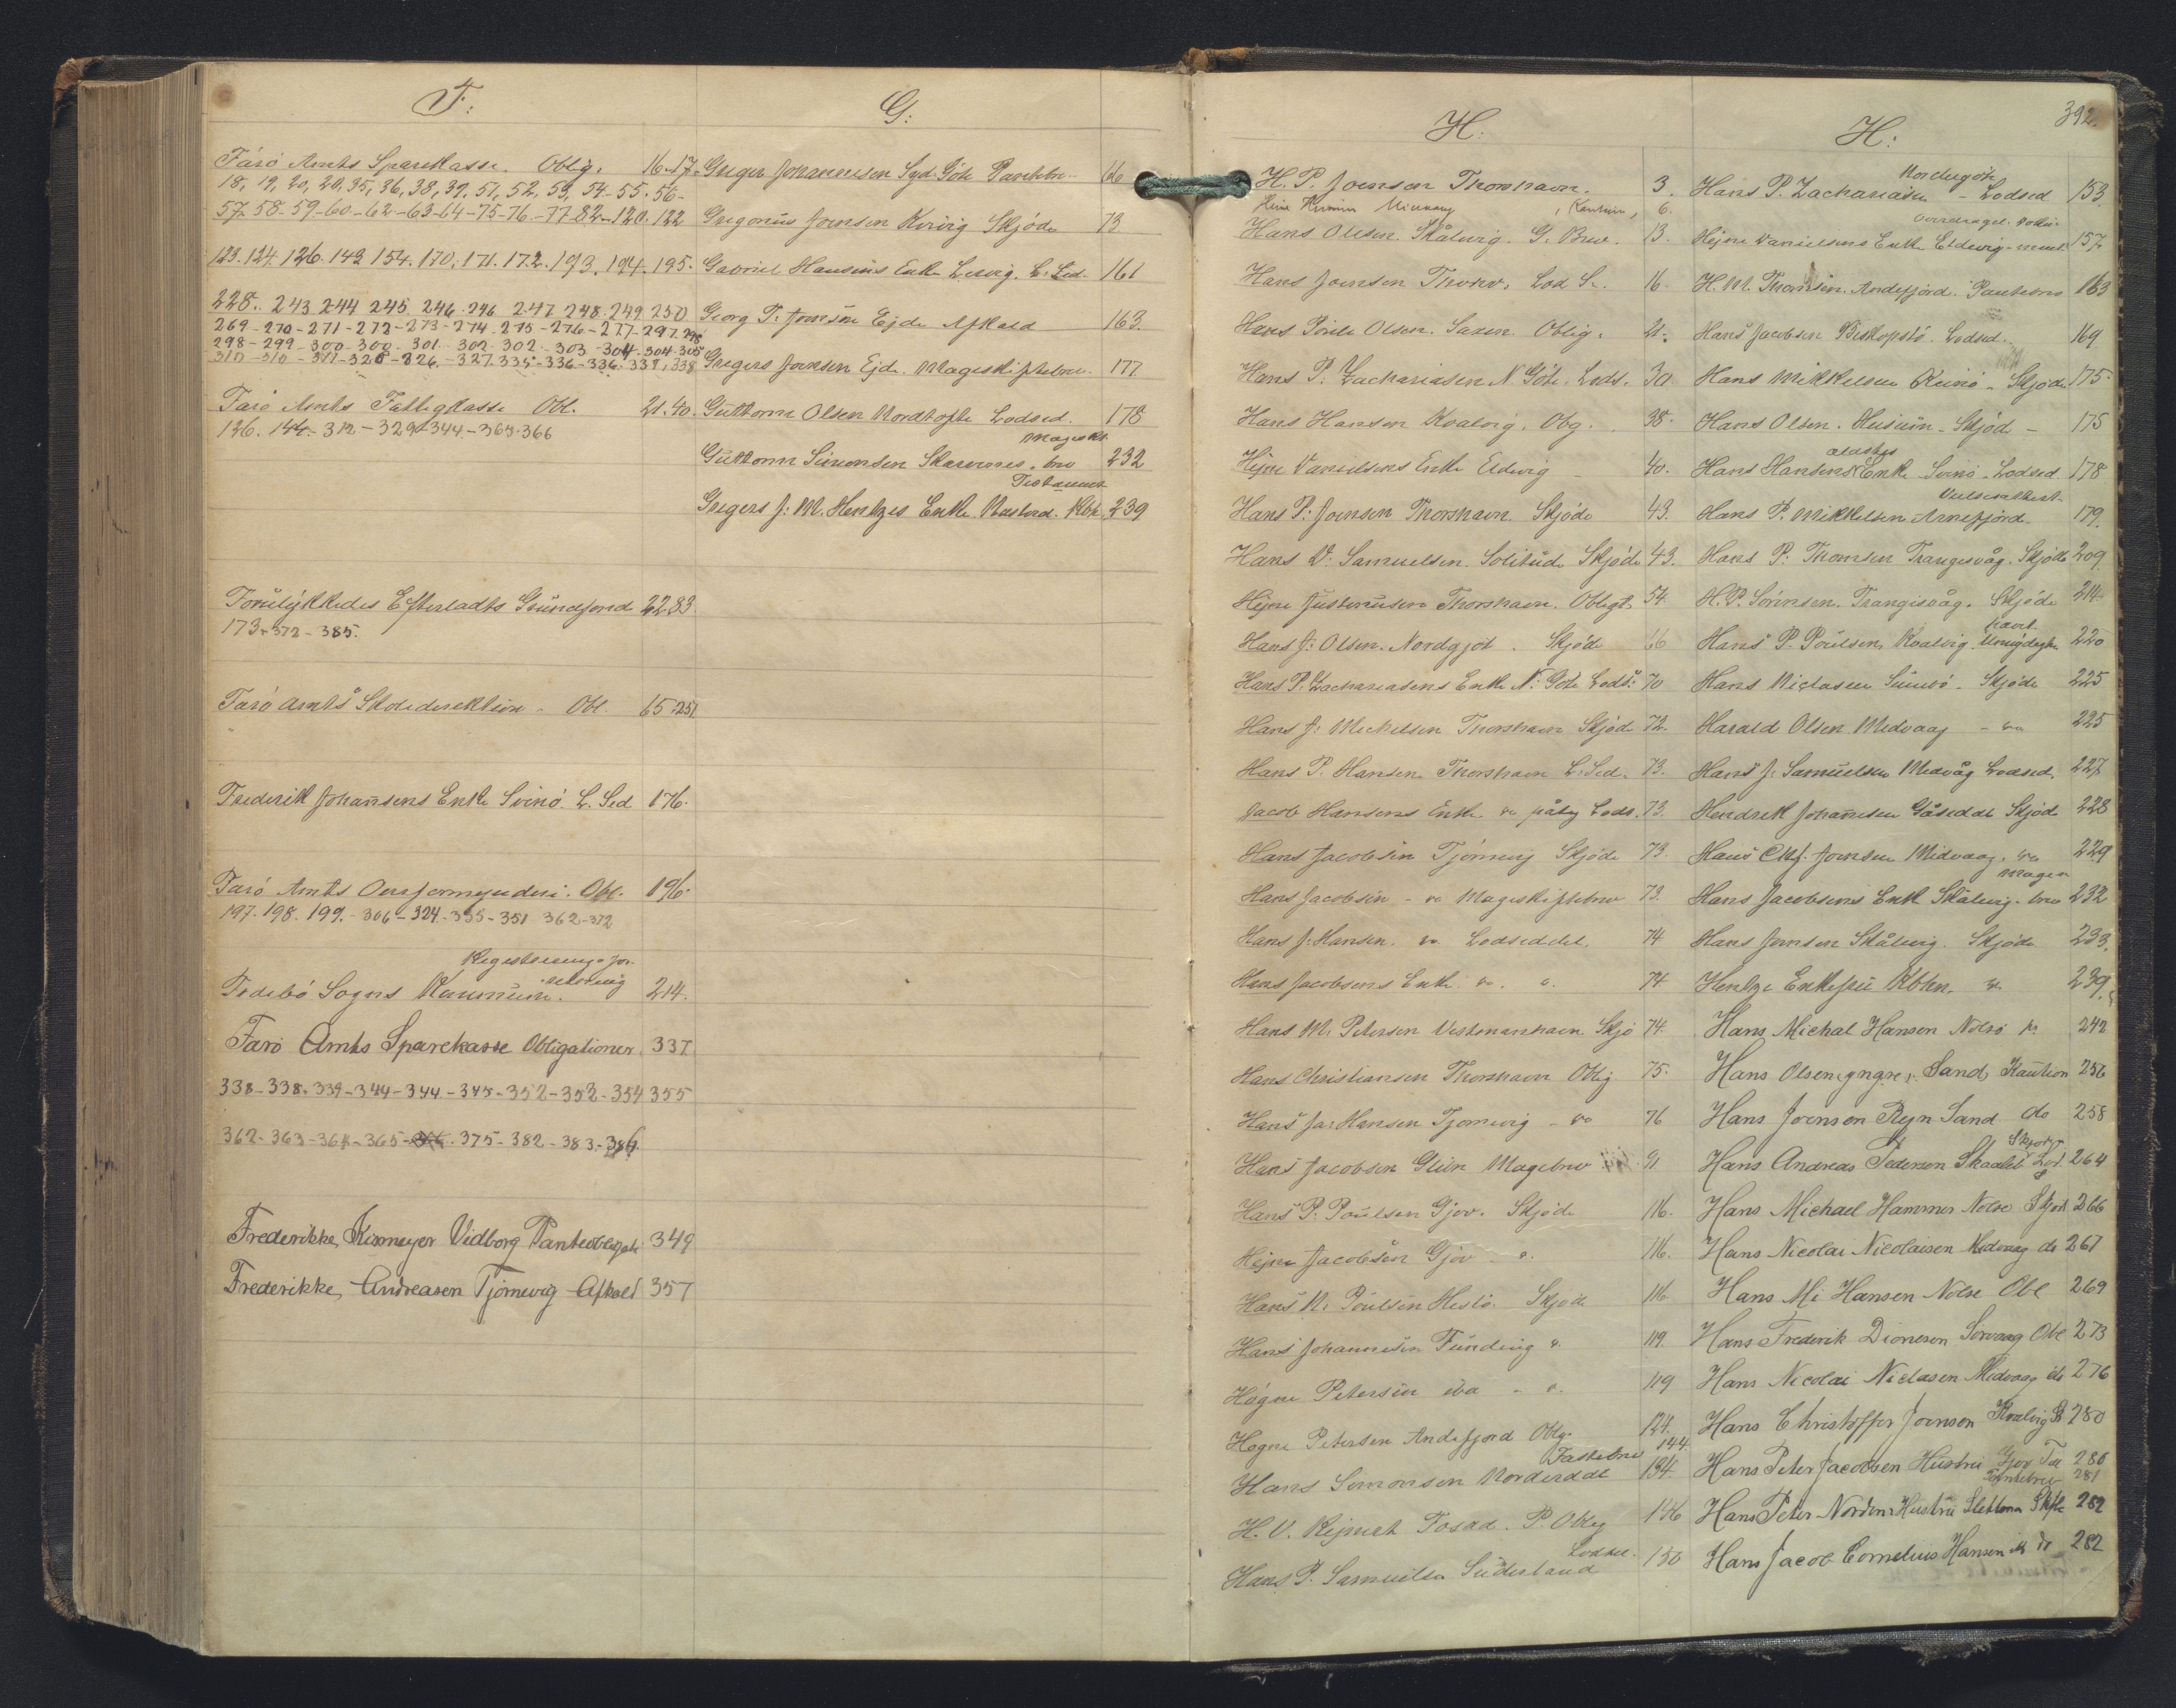 F:
Färö Amts Sparekasse. Oblig. 16.17.
18, 19, 20, 20, 35, 36, 38, 39, 51, 52, 53, 54-55.56-
57.58-59-60-62-63-64-75-76-77-82-120.122
123.124.126.142.154.170.171.172.193.194.195.
228. 243 244 245. 246.246 247 248.249 250
269-270-271-272-273-274.275-276-277-297.298
298-299-300-300-301-302-302-303-304-304.305
310-310-311-320-326-327.335-336-336.337,338
Färö Amts Fattigkasse Obl. 21.40.
126. 144.-312-329-344-365.366
Forulykkedes Efterladts Grundfond 22.83.
173-372-385.
Färö Amts Skoledirektion - Obl. 65.251
Frederik Johansens Enke Svinö. L. Sed 176.
Färö Amts Overformynderi. Obl. 196.
197.198.199.-306-324-335-351 362-372
Registrerings for-
Fodebö Sogns Kommune. 214.
Farö Amts Sparekasse Obligationer. 337.
338-338-339-344-344-345-352-352-354 355
362-363-364-365-375-382-383-386
Frederikke, Vidborg Panteobligati 349
Frederikke, Andreasen Tjörnevig Afkald 357
G:
Greger Johannesen Syd. Göte Pantebr. 16
Gregorius Joensen Kvivig Skjöde 73
Gabriel Hansens Enke Lervig. L. Sed. 161
Georg P. Joensen Ejde Afkald 163.
Gregers Joensen Ejde. Mageskiftebrev. 177
Guttorm Olsen Nordtofte Lodsed. 178
Magesk.
Guttorm Simonsen Skarvenes. brev 232
Testament
Gregers J: M. Hentzes Enke. Kbh. 239
392.
H:
H. P. Joensen Thorshavn. 3.
6.
Hans Olesen Skålevig. G. Brev. 13.
Hans Joensen Thorshv. Lod S. 16.
Hans Poule Olsen. Saxen. Oblig. 21.
Hans P. Zachariasen N Göte. Lods. 30.
Hans Hansen Kvalvig. Obg. 38.
Hejne Danielsens Enke Eldevig - 40.
Hans P: Joensen Thorshavn. Skjöde 43.
Hans D: Samuelsen. Solitude Skjöde 43.
Hejne Justinusen Thorshavn. Obligt. 54.
Hans J: Olsen. Nordgjöt. Skjöde 66
Hans P. Zachariasens Enke N: Göte Lods: 70
Hans J: Meckelsen Thorshavn Skjöde 72.
Hans P. Hansen Thorshavn L: Sed. 73.
Jacob Hansens Enke. do Lods. 73.
Hans Jacobsen Tjörnevig Skjöde 73.
Hans Jacobsen - do Mageskiftebrev 73.
Hans J: Hansen. do. Lodseddel. 74
Hans Jacobsens Enke. do. 74
Hans M. Petersen Vestmanhavn. Skjö 74.
Hans Christiansen Thorshavn Oblig 75.
Hans Jac: Hansen Tjörnevig - do 76
Hans Jacobsen Glivr Magebrev 91
Hans P: Poulsen Gjov. Skjöde 116.
Hejne Jacobsen Gjov - 116.
Hans N: Poulsen Hestö. Skjöde 116
Hans Johannesen Funding 119.
Högne Petersen 119
Hogne Petersen Andefjord Oblig. 124.
Fastebrev 144.
Hans Simonsen Norderdal 134.
H. U. Rejnert Tosad. P. Oblig 146
Lodsed.
Hans P. Samuelsen Süderland 150
H:
Nordregöte
Hans P. Zachariasen - Lodsed 153
Hejne Danielsens Enke Eldevig - 157.
H. M. Thomsen. Andefjord. Pantebrev 163
Hans Jacobsen Biskopstö. Lodsed. 169
Hans Mikkelsen Kunö - Skjöde 175.
Hans Olsen. Husum - Skjöd - 175
Hans Hansens Enke Svinö. Lodsed. 178
Hans P. Mikkelsen Arnefjord - 179.
Hans P: Thomsen Trangisvåg. Skjöde 209
H. P. Sörensen. Trangisvåg. Skjöde 214.
Hans P. Poulsen, Kvalvig. 220
Hans Niclasen Sumbö - Skjöde 225
Harald Olsen Midvaag - do 225
Hans J. Samuelsen Midvåg Lodsed. 227
Hendrik Johannesen Gåsedal Skjöd 228
Hans Chrf. Joensen Midvaag. do 229
Mages-
Hans Jacobsens Enke Skålevig. brev 232
Hans Joensen Skålevig. Skjöde 233.
Hentze Enkefru Kbhn. 239.
Hans Michal Hansen Nolsö 242
Hans Olsen yngre, Sand Kaution 256
Hans Joensen Reyn Sand do 258
Skjöde
Hans Andreas Pedersen Skaalebö Lod 264
Hans Michael Hammer Nolsö Skjöd 266
Hans Nicolai Nicolaisen Midvaag do 267
Hans Mi Hansen Nolsö Obl 269
Hans Frederik Dionesen Sörvaag Obl 273
Hans Nicolai Niclasen Midvaag do 276
Hans Christoffer Joensen Kvalvig 280
Hans Peter Jacobsen Hustru Gjov 280
Pantebrev 281
Hans Peter Hustru Slettena Skfte 282
Hans Jacob Cornelius Hansen do 282